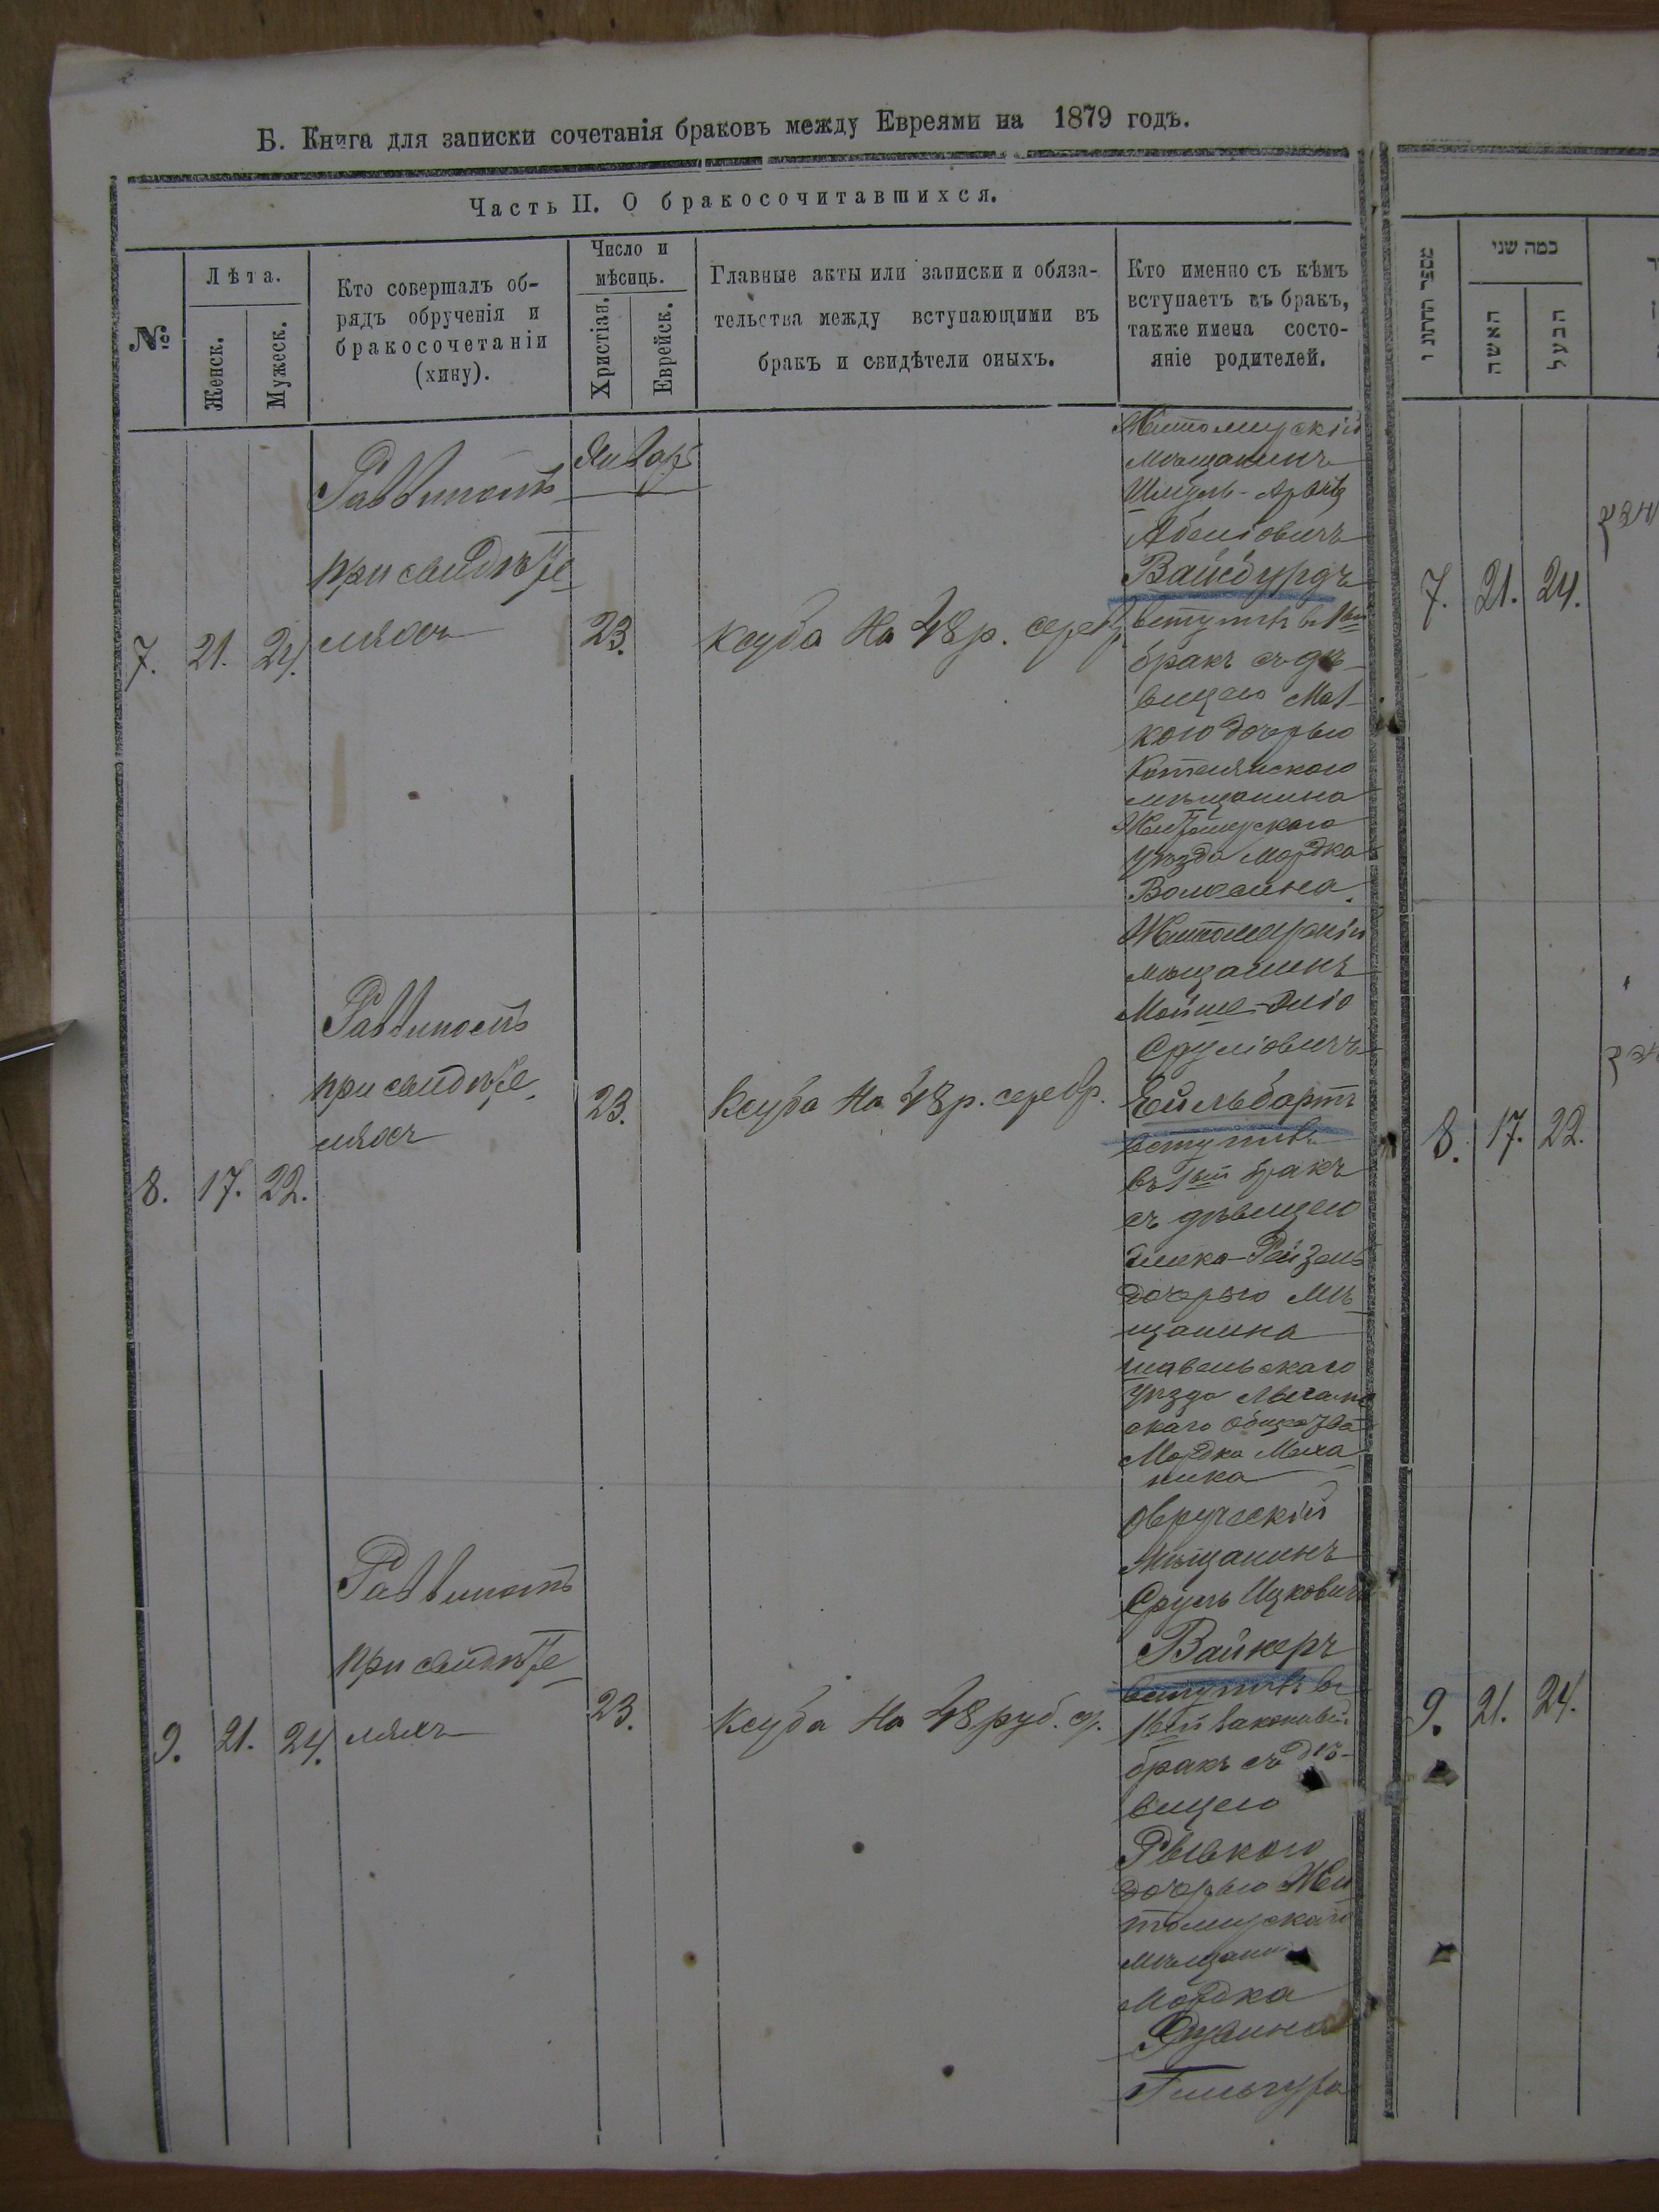 Б. Книга для записки сочетанія браковъ между Евреями на 1879 годъ.
Часть II. О бракосочитавшихся.
№
Лѣта.
Женск.
Мужеск.
Кто совершалъ об-
рядъ обрученія и
бракосочетаніи
(хину).
Число и
мѣсицъ.
Христіан.
Еврейск.
Главные акты или записки и обяза-
тельства между вступающими въ
бракъ и свидѣтели оныхъ.
Кто именно съ кѣмъ
вступаетъ въ бракъ,
также имена состо-
яніе родителей.
7. 21. 24.
Раввиномъ
при свидѣте
ляхъ
Январ
23.
Ксуба на 48 р. серебр.
Житомирскій
мѣщанинъ
Шмуль-
Абеліовичъ
Вайсбурдъ
вступилъ въ 1ый
бракъ съ дѣ-
вицею Мал-
кою дочерью
мѣщанина
Житомирскаго
уѣзда Мордка
8. 17. 22.
Раввиномъ
при свидѣте
ляхъ
23.
Ксуба на 48 р. серебр.
Житомирскій
мѣщанинъ
Мойше-Эліо
Сруліовичъ
Гейльбартъ
вступилъ
въ 1ый бракъ
съ дѣвицею
дочерью мѣ-
щанина
шавельскаго
уѣзда
скаго общества
Мордка
9. 21. 24.
Раввиномъ
при свидѣте
ляхъ
23.
Ксуба на 48 руб. ср.
Овручскій
мѣщанинъ
Сруль Ицковичъ
Вайнеръ
вступилъ въ
1вый законный
бракъ съ дѣ-
вицею
Рывкою
дочерью Жи
томирскаго
мѣщанин
Мордка
מספר החתונו
כמה שני
האשה
הבעל
7. 21. 24.
8. 17. 22.
9. 21. 24.